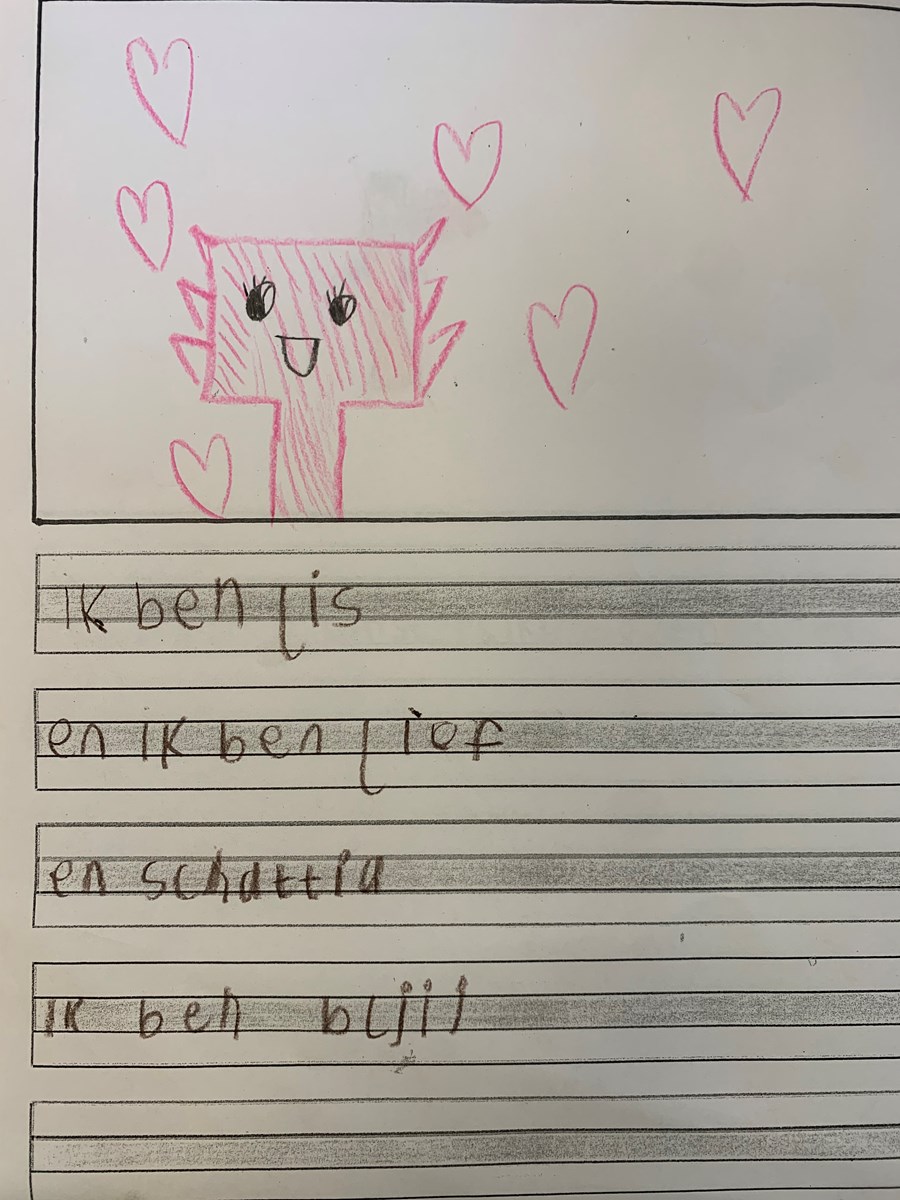 ik ben lis
en ik ben lief
en schattig
ik ben bljij